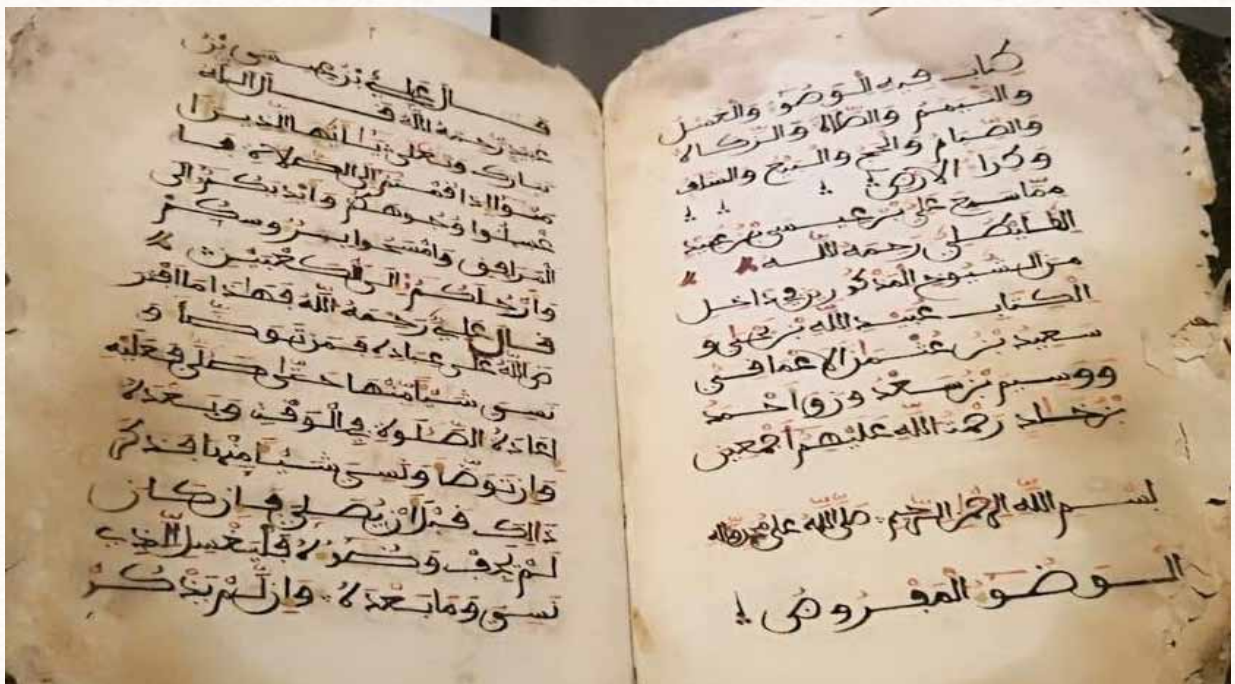 كتاب فيه الوضوء والغسل
والتيمم والصلاة والزكاة
والصيام والحج والبيع والسلف
وكرا الارض
مما سمع علي بن عيسى بن عبيد
الطليطلي رحمه الله
من الشيوخ المذكورين في داخل
الكتاب عبيد الله بن يحيى و
سعيد بن عثمان الاعناقي
ووسيم بن سعدون واحمد
بن خالد رحمت الله عليهم اجمعين
بسم الله الرحمن الرحيم صلى الله على محمد واله
الوضو المفروض
قال علي بن عيسى بن
عبيد رحمه الله قال الله
تبارك وتعلى يا ايها الذين ا
منوا اذا قمتم الى الصلاة فا
غسلوا وجوهكم وايديكم الى
المرافق وامسحوا برءوسكم
وارجلكم الى الكعبين
قال علي رحمه الله فهاذا ما افتر
ض الله على عباده فمن توضأ و
نسى شيأ منها حتى صلى فعليه
اعادة الصلوة في الوقت وبعده
وان توضا ونسى شيأ منها فذكر
ذالك قبل ان يصلي فان كان
لم يجف وضوءه فليغسل الذي
نسى وما بعده وان لم يذكر